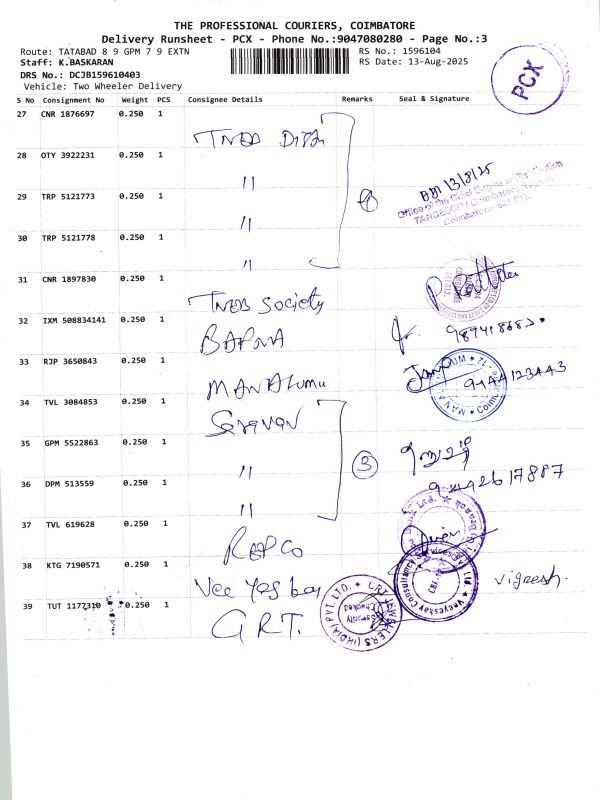 THE PROFESSIONAL COURIERS, COIMBATORE
Delivery Runsheet - PCX - Phone No.:9047080280 - Page No.:3
Route: TATABAD 8 9 GPM 7 9 EXTN
RS No.: 1596104
Staff: K.BASKARAN
RS Date: 13-Aug-2025
DRS No.: DCJB159610403
Vehicle: Two Wheeler Delivery
PCX
S No Consignment No Weight PCS Consignee Details Remarks Seal & Signature
27 CNR 1876697 0.250 1 TNEB
28 OTY 3922231 0.250 1 "
29 TRP 5121773 0.250 1 " 4 13/8/25
Office of the Chief Engineer Distribution
TANGEDCO / Coimbatore Region
Coimbatore - 641 012.
30 TRP 5121778 0.250 1 "
31 CNR 1897830 0.250 1 TNEB Society
32 IXM 508834141 0.250 1 BAFNA
33 RJP 3650843 0.250 1 MANALUMU 9144123443
34 TVL 3084853 0.250 1 Saravan
35 GPM 5522863 0.250 1 " 3
36 DPM 513559 0.250 1 "
37 TVL 619628 0.250 1 REPCO
38 KTG 7190571 0.250 1 Vee Yes Kay Vignesh.
39 TUT 1177310 0.250 1 G.R.T.
GRT JEWELLERS (INDIA) PVT. LTD.
Security Checked
Veeyeskay Consultancy Services Pvt. Ltd.